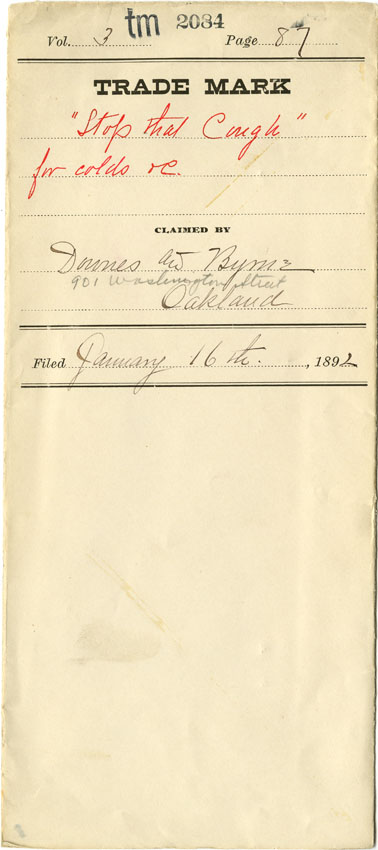 tm 2084
Vol. 3 Page 87
TRADE MARK
"Stop that Cough"
for colds &c.
CLAIMED BY
Downes and Byrne
901 Washington Street
Oakland
Filed January 16th. , 1892